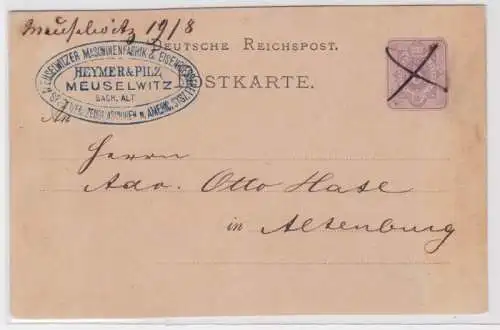 Meuselwitz 19/8
MEUSELWITZER MASCHINENFABRIK & EISENGIESSEREI
HEYMER & PILZ
MEUSELWITZ
SACH. ALT
DEUTSCHE REICHSPOST.
POSTKARTE.
An
Herrn
Adv. Otto Hase
in Altenburg